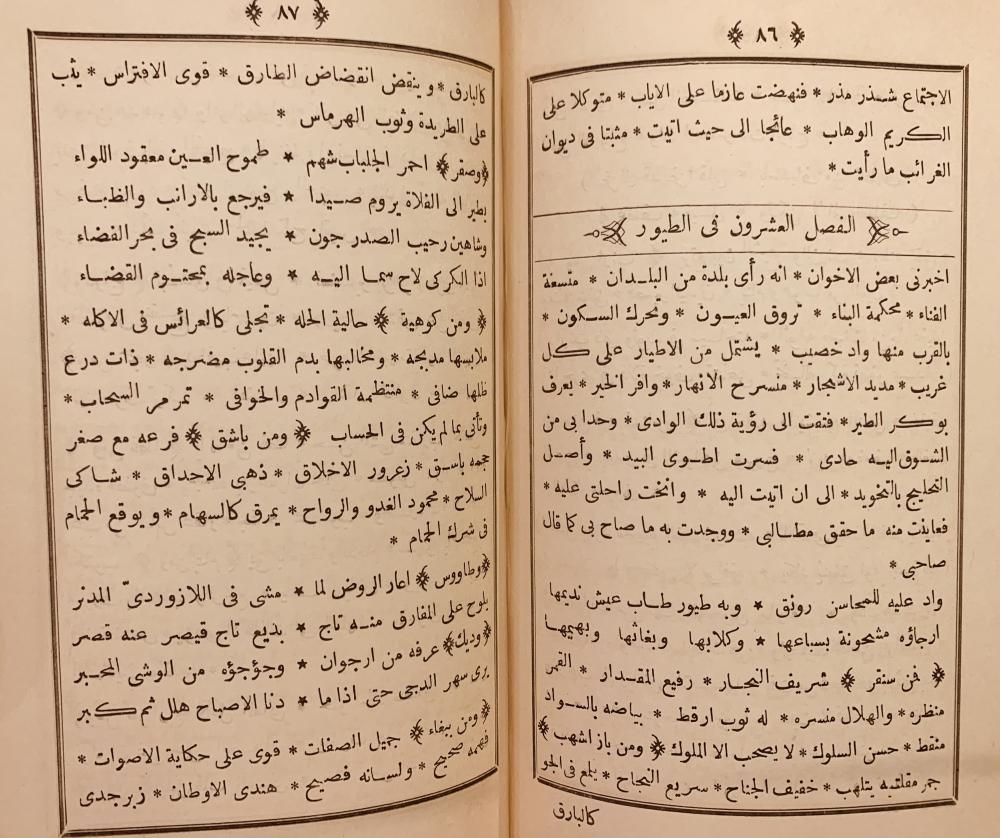 ﴿ ٨٦ ﴾
الاجتماع شذر مذر * فنهضت عازما على الاياب * متوكلا على
الكريم الوهاب * عائجا الى حيث اتيت * مثبتا فى ديوان
الغرائب ما رأيت *
الفصل العشرون فى الطيور
اخبرنى بعض الاخوان * انه رأى بلدة من البلدان * متسعة
الفناء * محكمة البناء * تروق العيون * وتحرك السكون *
بالقرب منها واد خصيب * يشتمل من الاطيار على كل
غريب * مديد الاشجار * منسرح الانهار * وافر الخير * يعرف
بوكر الطير * فتقت الى رؤية ذلك الوادى * وحدا بى من
الشوق اليه حادى * فسرت اطوى البيد * وأصل
التخليج بالتخويد * الى ان اتيت اليه * وانخت راحلتى عليه *
فعاينت منه ما حقق مطالبى * ووجدت به ما صاح بى كما قال
صاحبى *
واد عليه للمحاسن رونق * وبه طيور طاب عيش نديمها
ارجاؤه مشحونة بسباعها * وكلابها وبغاثها وبهيمها
﴿ فمن سنقر ﴾ شريف النجار * رفيع المقدار * القمر
منظره * والهلال منسره * له ثوب ارقط * بياضه بالسواد
منقط * حسن السلوك * لا يصحب الا الملوك ﴿ ومن باز اشهب ﴾
جمر مقلتيه يتلهب * خفيف الجناح * سريع النجاح * يلمع فى الجو
كالبارق
﴿ ٨٧ ﴾
كالبارق * وينقض انقضاض الطارق * قوى الافتراس * يثب
على الطريدة وثوب الهرماس *
﴿وصقر﴾ احمر الجلباب شهم * طموح العين معقود اللواء
يطير الى الفلاة يروم صيدا * فيرجع بالارانب والظباء
وشاهين رحيب الصدر جون * يجيد السبح فى بحر الفضاء
اذا الكركى لاح سما اليه * وعاجله بمحتوم القضاء
﴿ ومن كوهية ﴾ حالية الحله * تجلى كالعرائس فى الاكله *
ملابسها مدبجه * ومخالبها بدم القلوب مضرجه * ذات درع
ظلها ضافى * منتظمة القوادم والخوافى * تمر مر السحاب *
وتأتى بما لم يكن فى الحساب ﴿ ومن باشق ﴾ فرعه مع صغر
حجمه باسق * زعرور الاخلاق * ذهبى الاحداق * شاكى
السلاح * محمود الغدو والرواح * يمرق كالسهام * ويوقع الحمام
فى شرك الحمام *
﴿وطاووس﴾ اعار الروض لما * مشى فى اللازوردىّ المدنر
يلوح على المفارق منه تاج * بديع تاج قيصر عنه قصر
﴿وديك﴾ عرفه من ارجوان * وجؤجؤه من الوشى المحبر
يرى سهر الدجى حتى اذا ما * دنا الاصباح هلل ثم كبر
﴿ ومن ببغاء ﴾ جميل الصفات * قوى على حكاية الاصوات *
فهمه صحيح * ولسانه فصيح * هندى الاوطان * زبرجدى